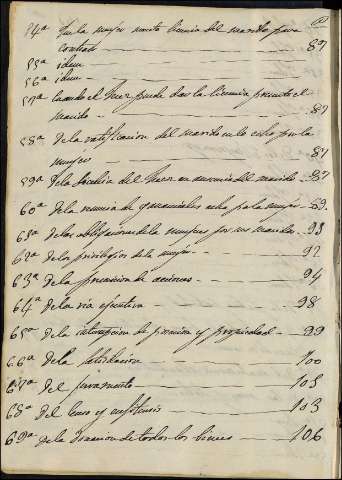 54ª Que la muger necesita licencia del marido para
contratar — 87
55ª idem —
56ª idem —
57ª Cuando el Juez puede dar la licencia por ante el
marido — 87
58ª De la ratificacion del marido en lo echo por la
muger — 87
59ª De la facultad del Juez en ausencia del marido — 87
60ª De la renuncia de gananciales echa por la muger — 89
61ª De las obligaciones de la muger por su marido — 93
62ª De los privilegios de la muger — 92
63ª De la prescricion de acciones — 94
64ª De la via ejecutiva — 98
65ª De la interrupcion de posesion y propiedad — 99
66ª De la — 100
67ª Del juramento — 103
68ª Del censo y enfiteusis — 103
69ª De la donacion de todos los bienes — 106